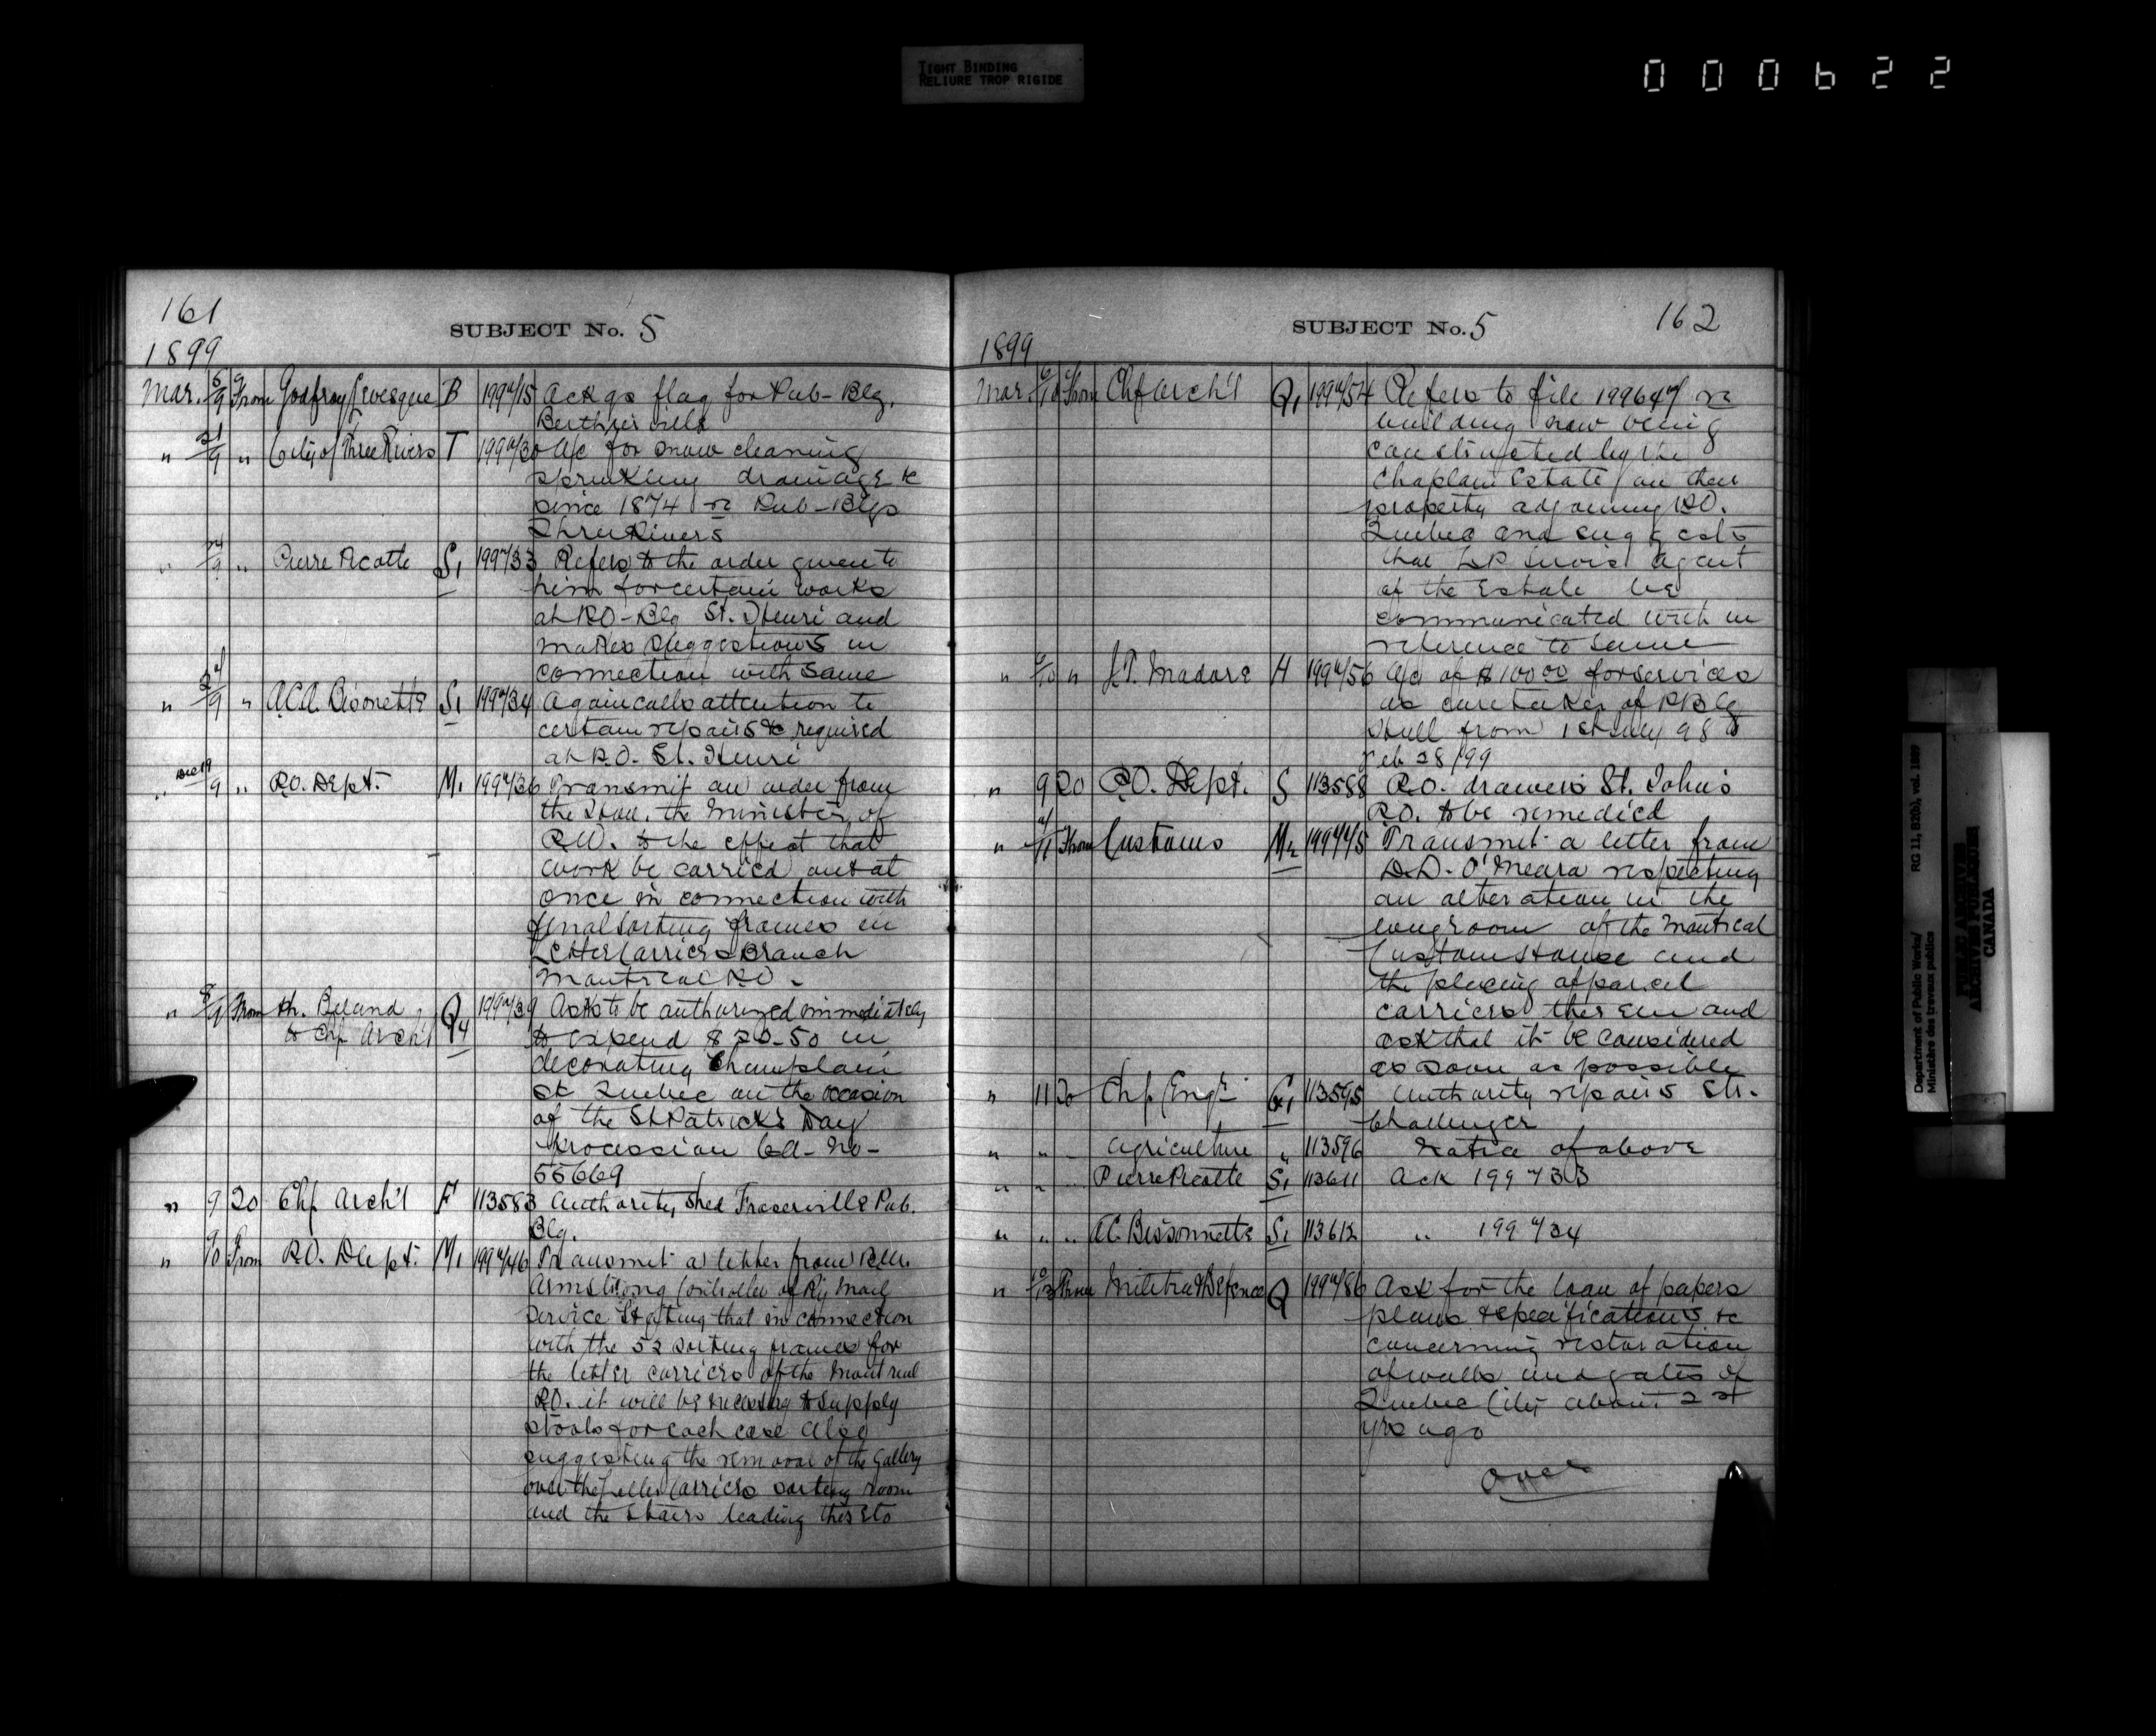 TIGHT BINDING
RELIURE TROP RIGIDE
000622
161
SUBJECT No. 5
1899
Mar. 5/9 From Godfroy Levesque B 199715 Ackgs flag for Pub-Blg.
Berthierville
" 21/9 " City of Three Rivers T 199730 A/c for snow cleaning
sprinkling drainage &c
since 1874 re Pub-Blgs
Three Rivers
" " Pierre Picotte S1 199733 Refers to the order given to
him for certain works
at P.O-Blg St. Henri and
makes suggestions in
connection with same
" " A.C.A. Bissonette S1 199734 Again calls attention to
certain repairs &c required
at P.O. St. Henri
" Dec 19/9 " P.O. Dept. M1 199736 Transmit an order from
the Hon. the Minister of
P.W. to the effect that
work be carried out at
once in connection with
final sorting frames in
Letter Carriers Branch
Montreal P.O.-
" 8/9 From Ph. Beland
to Chf Arch't Q4 199739 Asks to be authorized immediately
to expend $20.50 in
decorating Champlain
St Quebec on the occasion
of the St Patrick's Day
Procession Cd-No-
55669
" 9 20 Chf Arch't F 113583 Authority, shed Fraserville Pub.
Blg.
" 9/10 From P.O. Dept. M1 199746 Transmit a letter from
Armstrong Controller of Ry Mail
Service stating that in connection
with the 52 sorting frames for
the letter carriers of the Montreal
P.O. it will be necessary to supply
stools for each case also
suggesting the removal of the Gallery
over the Letter Carriers sorting room
and the stairs leading thereto
SUBJECT No. 5
162
1899
Mar /10 From Chf Arch't Q1 199754 Refers to file 199647 re
building now being
constructed by the
Chaplain Estate on their
property adjoining P.O.
Quebec and suggests
that agent
of the Estate be
communicated with in
reference to same
" /10 " J.P. Madore H 199756 A/c of $100.00 for services
as caretaker of P.Blg
Hull from 1st July 98 to
Feb 28/99
" 9 20 P.O. Dept. S 113588 P.O. drawers St. John's
P.O. to be remedied
" /11 From Customs M2 199775 Transmit a letter from
D.D. O'Meara respecting
an alteration in the
longroom of the Montreal
Customs House and
the placing of parcel
carriers therein and
ask that it be considered
as soon as possible
" 11 20 Chf Eng'r G1 113595 Authority repairs Str.
Challenger
" " Agriculture " 113596 Notice of above
" " Pierre Picotte S1 113611 Ack 199733
" " " A.C. Bissonnette S1 113612 " 199734
" 10/13 From Militia & Defence Q 199786 Ask for the loan of papers
plans & specifications &c
concerning restoration
of walls and gates of
Quebec City about
yrs ago
over
Department of Public Works/
Ministère des travaux publics
RG 11, B2(b), vol. 1889
PUBLIC ARCHIVES
ARCHIVES PUBLIQUES
CANADA